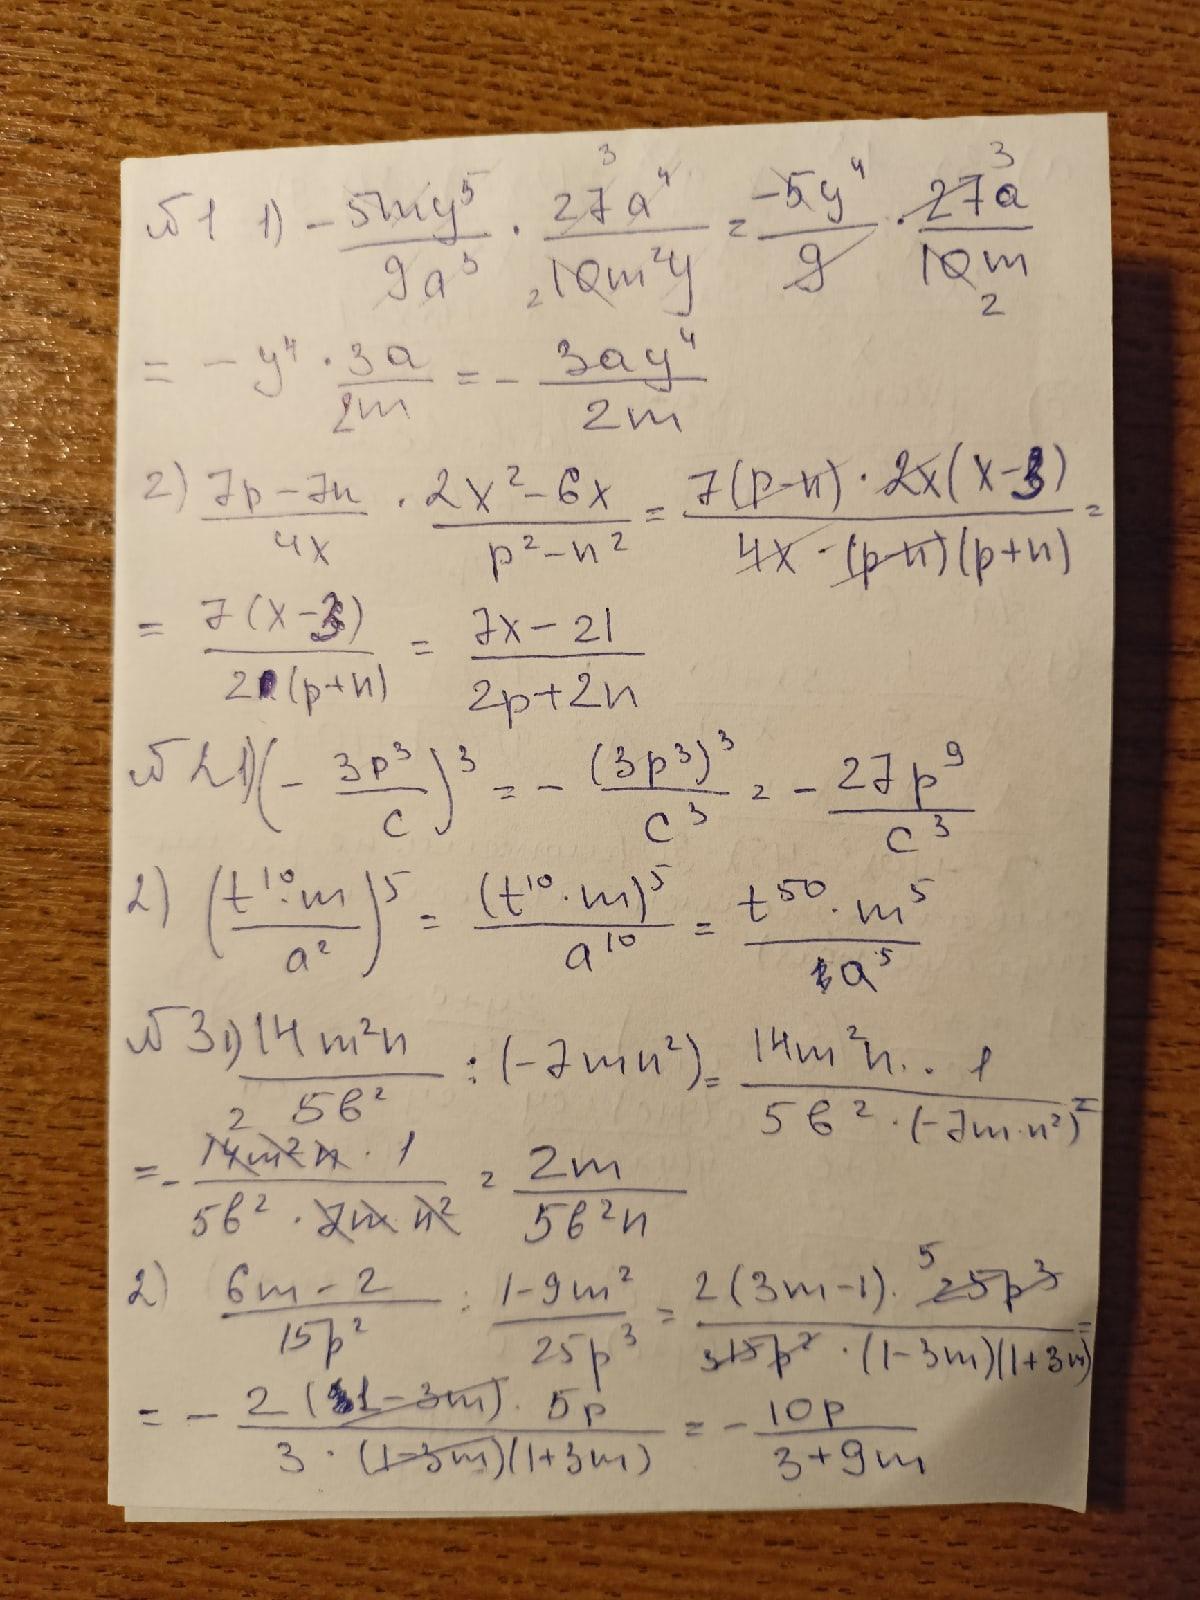 №1 1) - 5my⁵/9a³ · 27a⁴/10m²y = -5y⁴/9 · 27a/10m
= - y⁴ · 3a/2m = - 3ay⁴/2m
2) 7p-7n/4x · 2x²-6x/p²-n² = 7(p-n)·2x(x-3)/4x·(p-n)(p+n) =
= 7(x-3)/2(p+n) = 7x-21/2p+2n
№2 1) (- 3p³/c)³ = - (3p³)³/c³ = - 27p⁹/c³
2) (t¹⁰·m/a²)⁵ = (t¹⁰·m)⁵/a¹⁰ = t⁵⁰·m⁵/a⁵
№3 1) 14m²n/5b² : (-7mn²) = 14m²n·1/5b²·(-7m·n²) =
= - 14m²n·1/5b²·7m n² = 2m/5b²n
2) 6m-2/15p² : 1-9m²/25p³ = 2(3m-1)·25p³/15p²·(1-3m)(1+3m) =
= - 2(1-3m)·5p/3·(1-3m)(1+3m) = - 10p/3+9m